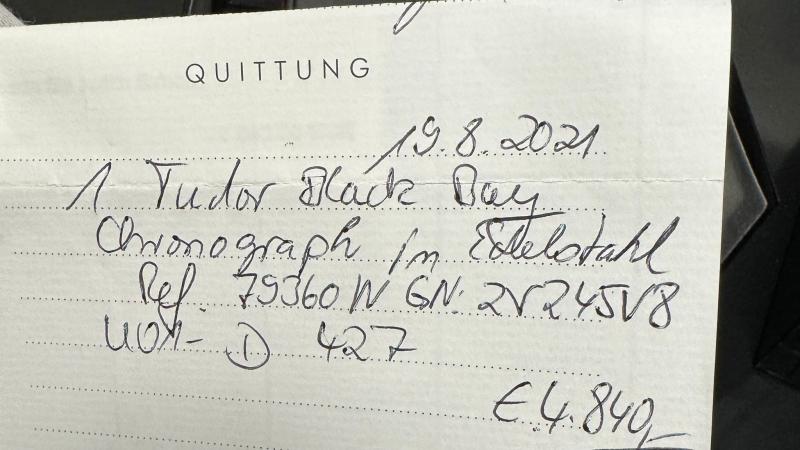 QUITTUNG
19.8.2021
1 Tudor Black Bay
Chronograph in Edelstahl
Ref. 79360N GN: 2V245V8
D 427
€ 4.840,–